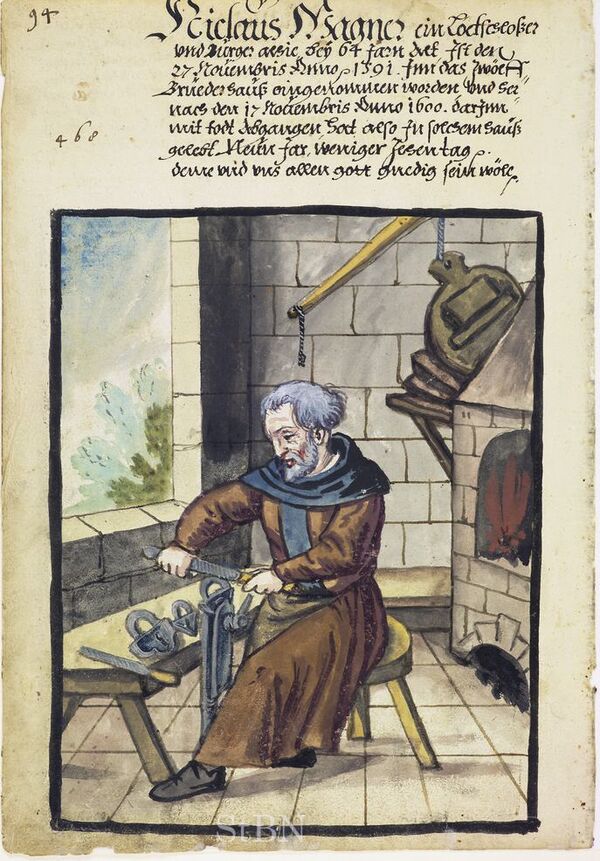 94
Niclaus Wagner ein Lochschloßer
und Burger alhie bey 64 Jarn alt Ist den
27 Nouembris Anno 1591. Inn das Zwölff
Brüederhauß eingenommen worden Und
nach den 17 Nouembris Anno 1600. darInn
mit todt Abgangen hat also In solchem hauß
gelebt Neün Jar, weniger Zehen tag.
deme vnd vns allen gott gnedig sein wöle.
468
StBN